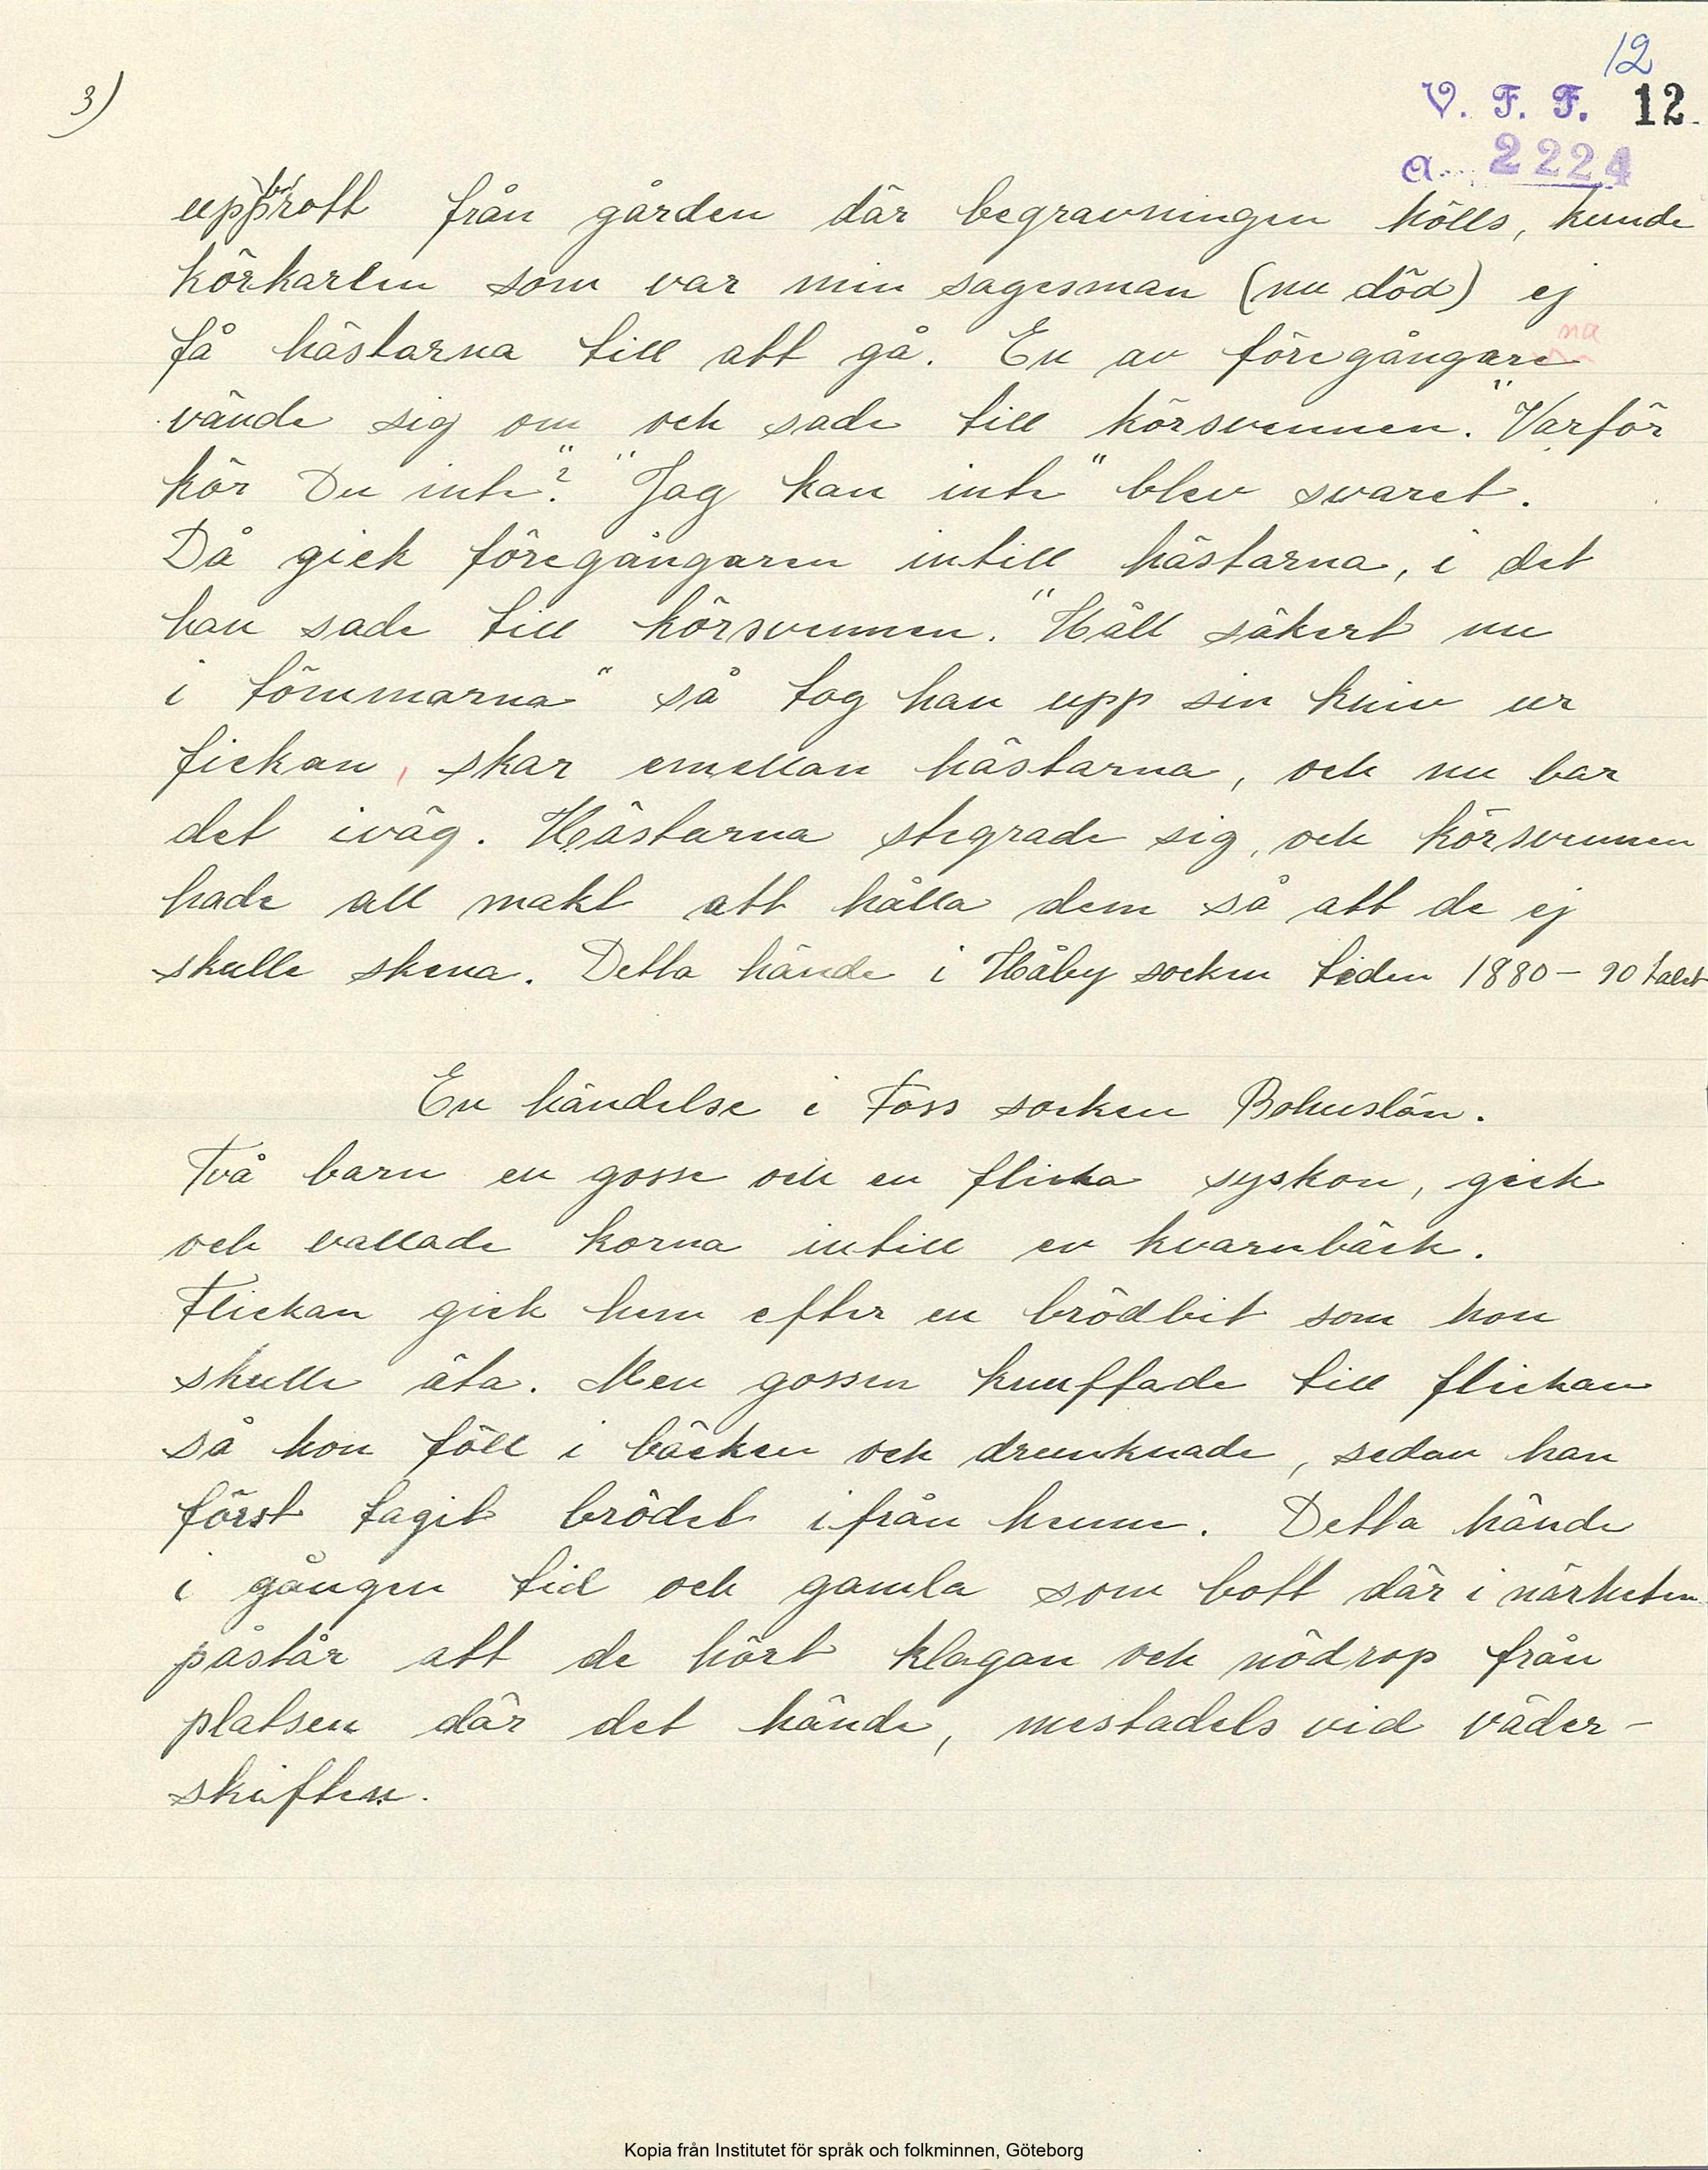 12
3)
V. F. F. 12.
a. 2224
uppbrott från gården där begravningen hölls, kunde
körkarlen som var min sagesman (nu död) ej
få hästarna till att gå. En av föregångarena
vände sig om och sade till körsvennen. "Varför
kör Du inte?" "Jag kan inte" blev svaret.
Då gick föregångaren intill hästarna, i det
han sade till körsvennen. "Håll säkert nu
i tömmarna" så tog han upp sin kniv ur
fickan, skar emellan hästarna, och nu bar
det iväg. Hästarna stegrade sig, och körsvennen
hade all makt att hålla dem så att de ej
skulle skena. Detta hände i Håby socken tiden 1880-90 talet
En händelse i Foss socken Bohuslän.
Två barn en gosse och en flicka syskon, gick
och vallade korna intill en kvarnbäck.
Flickan gick hem efter en brödbit som hon
skulle äta. Men gossen knuffade till flickan
så hon föll i bäcken och drunknade, sedan han
först tagit brödet ifrån henne. Detta hände
i gången tid och gamla som bott där i närheten
påstår att de hört klagan och nödrop från
platsen där det hände, mestadels vid väder-
skiften.
Kopia från Institutet för språk och folkminnen, Göteborg